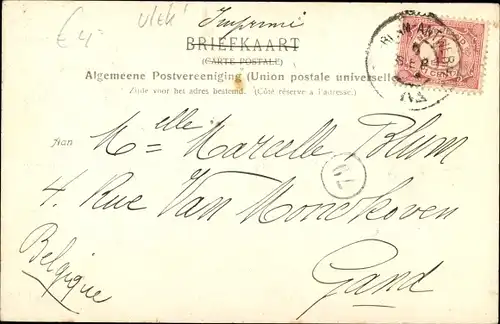 € 4,- Vlek!
Imprimé
BRIEFKAART
(CARTE POSTALE)
Algemeene Postvereeniging (Union postale universelle)
Zijde voor het adres bestemd. (Côté réserve à l'adresse.)
Aan Melle Marcelle Blum
79
4. Rue Van Monckhoven
Gand
Belgique